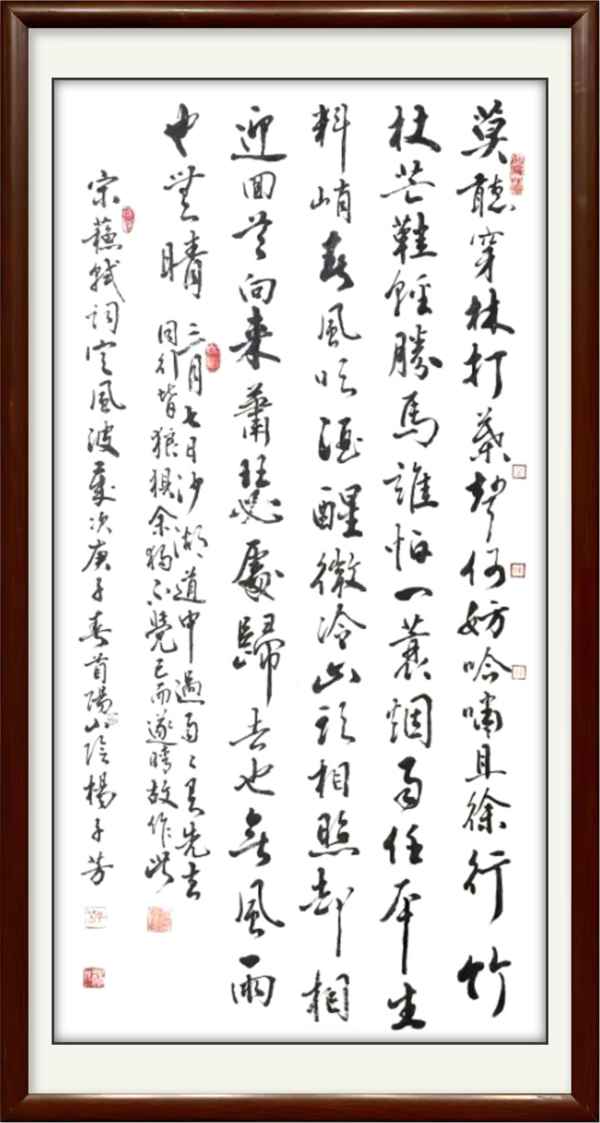 莫聽穿林打葉聲何妨吟嘯且徐行竹
杖芒鞋輕勝馬誰怕一蓑烟雨任平生
料峭春風吹酒醒微冷山頭相照却相
迎回首向來蕭瑟處歸去也無風雨
也無晴
三月七日沙湖道中遇雨〻具先去
同行皆狼狽余獨不覺已而遂晴故作此
宋蘇軾詞定風波歲次庚子春首陽山陰楊子芳